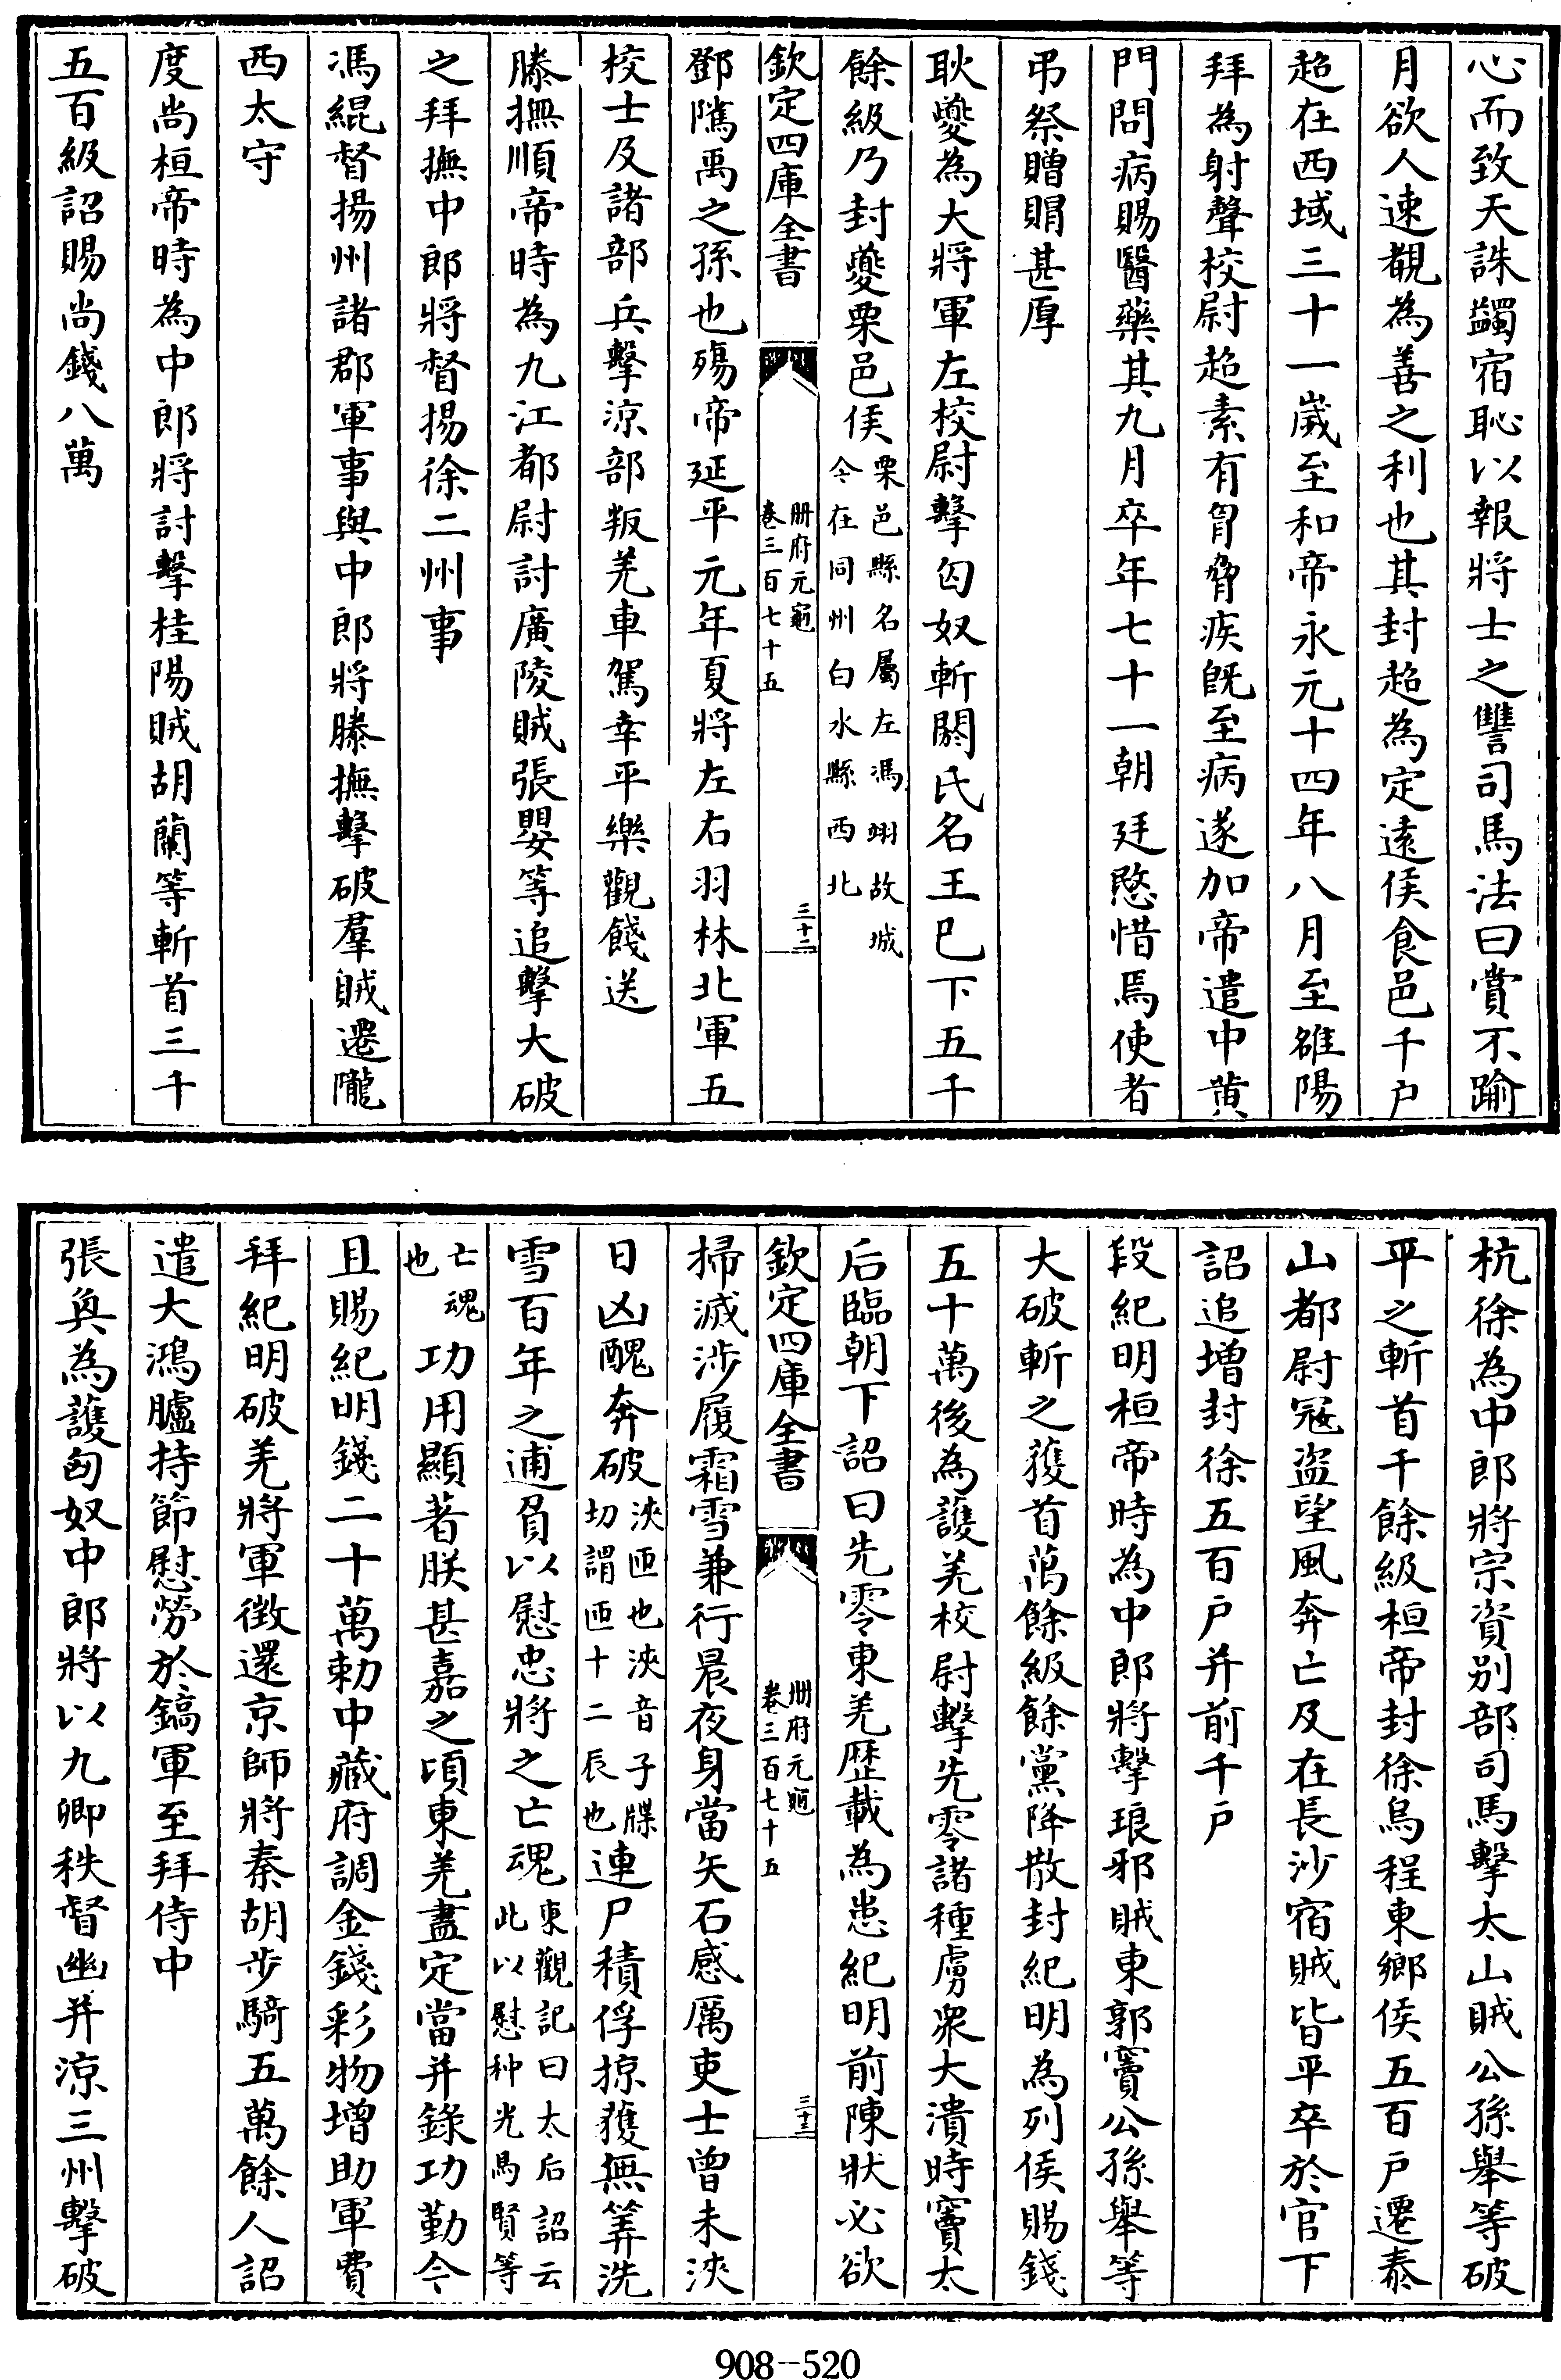 心而致天誅蠲宿恥以報將士之讐司馬法曰賞不踰
月欲人速覩為善之利也其封超為定逺侯食邑千户
超在西域三十一歲至和帝永元十四年八月至雒陽
拜為射聲校尉超素有胷脅疾既至病遂加帝遣中黄
門問病賜醫藥其九月卒年七十一朝廷愍惜焉使者
弔祭贈賵甚厚
耿夔為大將軍左校尉擊匈奴斬閼氏名王巳下五千
餘級乃封夔栗邑侯栗邑縣名屬左馮翊故城今在同州白水縣西北
欽定四庫全書 册府元龜 卷三百七十五 三十二
鄧隲禹之孫也殤帝延平元年夏將左右羽林北軍五
校士及諸部兵擊涼部叛羌車駕幸平樂觀餞送
滕撫順帝時為九江都尉討廣陵賊張嬰等追擊大破
之拜撫中郎將督揚徐二州事
馮緄督揚州諸郡軍事與中郎將滕撫擊破羣賊遷隴
西太守
度尚桓帝時為中郎將討擊桂陽賊胡蘭等斬首三千
五百級詔賜尚錢八萬
杭徐為中郎將宗資别部司馬擊太山賊公孫舉等破
平之斬首千餘級桓帝封徐烏程東鄉侯五百户遷泰
山都尉冦盗望風奔亡及在長沙宿賊皆平卒於官下
詔追增封徐五百户并前千户
段紀明桓帝時為中郎將擊琅邪賊東郭竇公孫舉等
大破斬之獲首萬餘級餘黨降散封紀明為列侯賜錢
五十萬後為護羌校尉擊先零諸種虜衆大潰時竇太
后臨朝下詔曰先零東羌歴載為患紀明前陳狀必欲
欽定四庫全書 册府元龜 卷三百七十五 三十三
掃滅涉履霜雪兼行晨夜身當矢石感厲吏士曾未浹
日凶醜奔破浹匝也浹音子牒切謂匝十二辰也連尸積俘掠獲無筭洗
雪百年之逋負以慰忠將之亡魂東觀記曰太后詔云此以慰种光馬賢等
亡魂也功用顯著朕甚嘉之頃東羌盡定當并錄功勤今
且賜紀明錢二十萬勅中藏府調金錢彩物增助軍費
拜紀明破羌將軍徵還京師將秦胡步騎五萬餘人詔
遣大鴻臚持節慰勞於鎬軍至拜侍中
張奐為護匈奴中郎將以九卿秩督幽并涼三州擊破
908-520